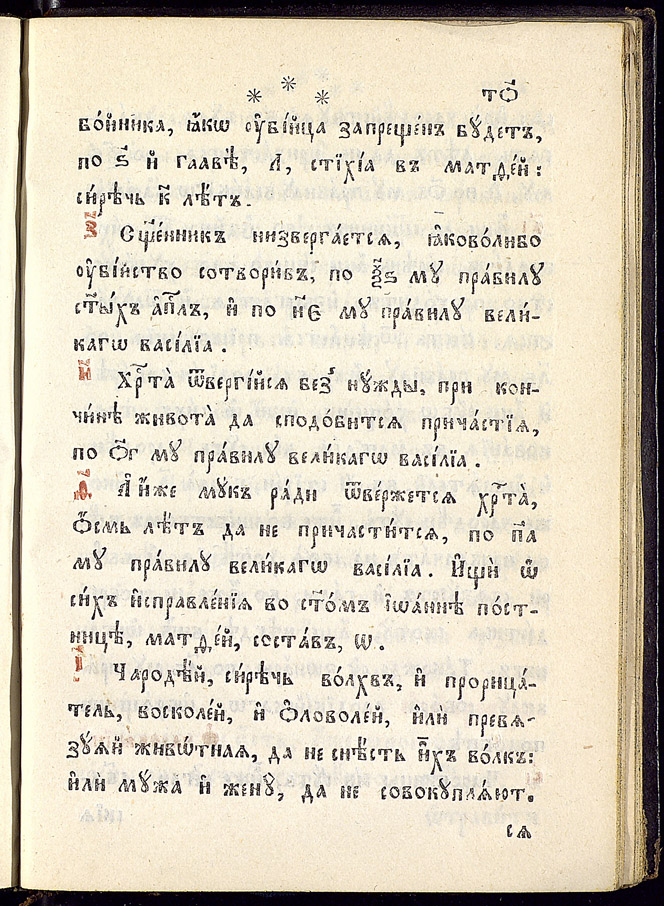 * * * то҃
во́йника, ꙗ҆́кѡ ᲂу҆бі́йца запреще́нъ бꙋ́детъ,
по ѕ҃ й главѣ̀, л, стїхі́а въ матѳе́й:
си́рѣчь к҃ лѣ́тъ.
з҃
Сщ҃е́нникъ низверга́ется, ꙗ҆́ково́либо
ᲂу҆бі́йство сотвори́въ, по ѯ҃ѕ мꙋ пра́вилꙋ
ст҃ы́хъ а҆пⷭ҇лъ, и҆ по н҃є мꙋ пра́вилꙋ вели́-
кагѡ васі́лїа.
и҃
Хрⷭ҇та̀ ѿве́ргїйсѧ без̾ нꙋ́жды, при кон-
чи́нѣ живота̀ да сподо́битсѧ прича́стїѧ,
по о҃г мꙋ пра́вилꙋ вели́кагѡ васі́лїа.
ѳ҃
А҆ и҆́же мꙋ́къ ра́ди ѿве́ржетсѧ хрⷭ҇та̀,
ѻ҆́смь лѣ́тъ да не причасти́тсѧ, по п҃а
мꙋ пра́вилꙋ вели́кагѡ васі́лїа. И҆щѝ ѿ
си́хъ и҆справле́нїѧ во ст҃о́мъ і҆ѡа́ннѣ по́ст-
ницѣ, матѳе́й, соста́въ, ѡ.
і҃
Чародѣ́й, си́рѣчь во́лхвъ, и҆ прорица́-
тель, восколе́й, и҆ ѻ҆ловоле́й, и҆лѝ превѧ-
зꙋ́ѧй живѡ́тнаѧ, да не снѣ́сть и҆́хъ во́лкъ:
и҆лѝ мꙋ́жа и҆ женꙋ̀, да не совокꙋплѧ́ют.
сѧ